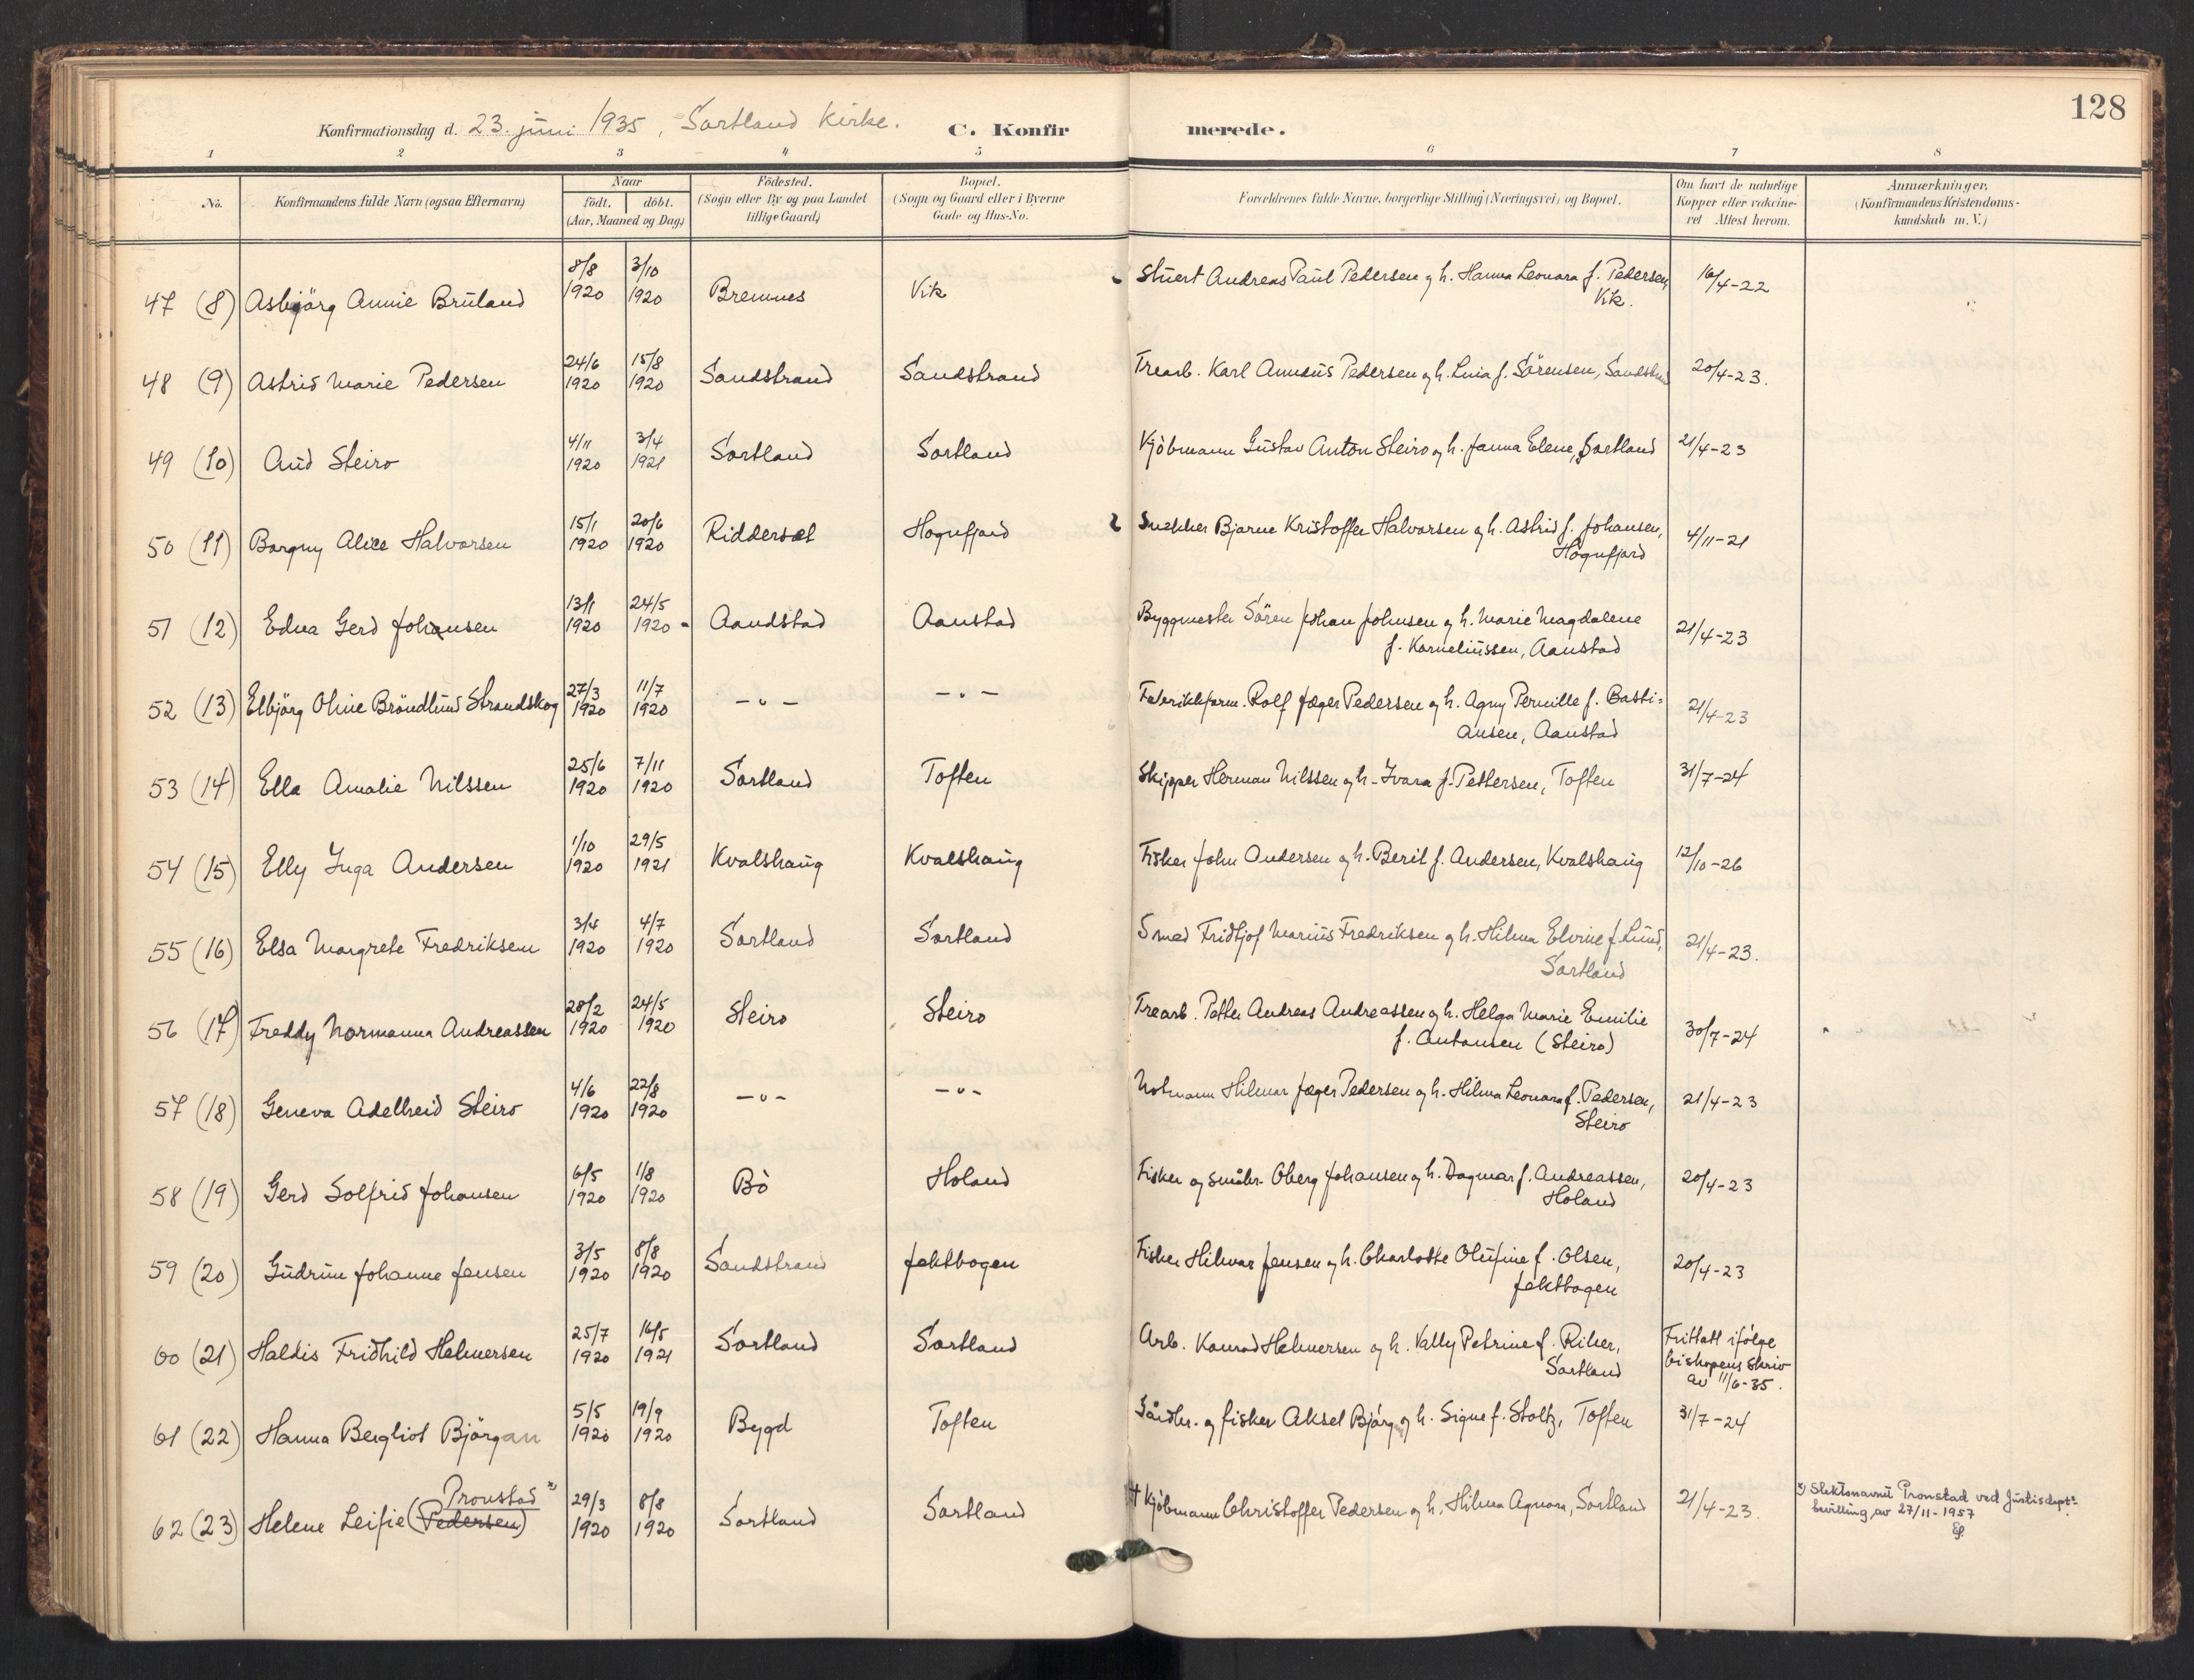 128
Konfirmationsdag d. 23. juni 1935, Sortland Kirke. C. Konfir merede.
1 2 3 4 5 6 7 8
No. Konfirmandens fulde Navn (ogsaa Efternavn) Naar födt. döbt. (Aar, Maaned og Dag) Födested. (Sogn eller By og paa Landet tillige Gaard) Bopæl. (Sogn og Gaard eller i Byerne Gade og Hus-No. Forældrenes fulde Navne, borgerlige Stilling (Næringsvei) og Bopæl. Om havt de naturlige Kopper eller vakcineret Attest herom. Anmærkninger. (Konfirmandens Kristendomskundskab m. V.)
47 (8) Asbjörg Annie Bruland 8/8 1920 3/10 1920 Bremnes Vik Stuert Andreas Paul Pedersen og h. Hanna Leonora f. Pedersen, 16/4-22
Vik.
48 (9) Astrid Marie Pedersen 24/6 1920 15/8 1920 Sandstrand Sandstrand Trearb. Karl Amandus Pedersen og h. Luia f. Sörensen, Sandstrand 20/4-23.
49 (10) Aud Steiro 4/11 1920 3/4 1921 Sortland Sortland Kjöbmann Gustav Anton Steiro og h. Janna Elene, Sortland 21/4-23
50 (11) Borgny Alice Halvorsen 15/1 1920 20/6 1920 Riddersæl Hognfjord Snekker Bjarne Kristoffer Halvorsen og h. Astrid f. Johansen, 4/11-21
Hognfjord
51 (12) Edna Gerd Johansen 13/1 1920 24/5 1920 Aandstad Aanstad Byggmester Sören Johan Johnsen og h. Marie Magdalene 21/4-23
f. Korneliussen, Aanstad
52 (13) Elbjörg Oline Bröndlund Strandskog 27/3 1920 11/7 1920 - " - - " - Fabrikkform. Rolf Jæger Pedersen og h. Agny Pernille f. Basti- 21/4-23
ansen, Aanstad
53 (14) Ella Amalie Nilssen 25/6 1920 7/11 1920 Sortland Toften Skipper Herman Nilssen og h. Ivara f. Pettersen, Toften 31/7-24
54 (15) Elly Inga Andersen 1/10 1920 29/5 1921 Kvalshaug Kvalshaug Fisker John Andersen og h. Berit f. Andersen, Kvalshaug 12/10-26
55 (16) Elsa Margrete Fredriksen 3/4 1920 4/7 1920 Sortland Sortland Smed Fridtjof Marius Fredriksen og h. Hilma Elvine f. Lund, 21/4-23.
Sortland
56 (17) Freddy Normanna Andreassen 28/2 1920 24/5 1920 Steiro Steiro Trearb. Petter Andreas Andreassen og h. Helga Marie Emilie 30/7-24
f. Antonsen (Steiro)
57 (18) Geneva Adelheid Steiro 4/6 1920 22/8 1920 - " - - " - Notmann Hilmar Jæger Pedersen og h. Hilma Leonora f. Pedersen, 21/4-23
Steiro
58 (19) Gerd Solfrid Johansen 6/5 1920 1/8 1920 Bö Holand Fisker og småbr. Oberg Johansen og h. Dagmar f. Andreassen, 20/4-23
Holand
59 (20) Gudrun Johanne Jensen 3/5 1920 8/8 1920 Sandstrand Jektbogen Fisker Hilmar Jensen og h. Charlotte Olufine f. Olsen, 20/4-23
Jektbogen
60 (21) Haldis Fridhild Helmersen 25/7 1920 16/5 1921 Sortland Sortland Arb. Konrad Helmersen og h. Vally Petrine f. Riker, Frittatt ifölge
Sortland biskopens skriv
av 11/6-35.
61 (22) Hanna Bergliot Björgan 5/5 1920 19/9 1920 Bygd Toften Gårdbr. og fisker Aksel Bjórg og h. Signe f. Stoltz, Toften 31/7-24
Pronstad x)
62 (23) Helene Leifie (Pedersen) 29/3 1920 8/8 1920 Sortland Sortland † Kjöbmann Christoffer Pedersen og h. Hilma Agnora, Sortland 21/4-23. x) Slektsnavnet Pronstad ved Justisdept's
bevilling av 27/11-1957